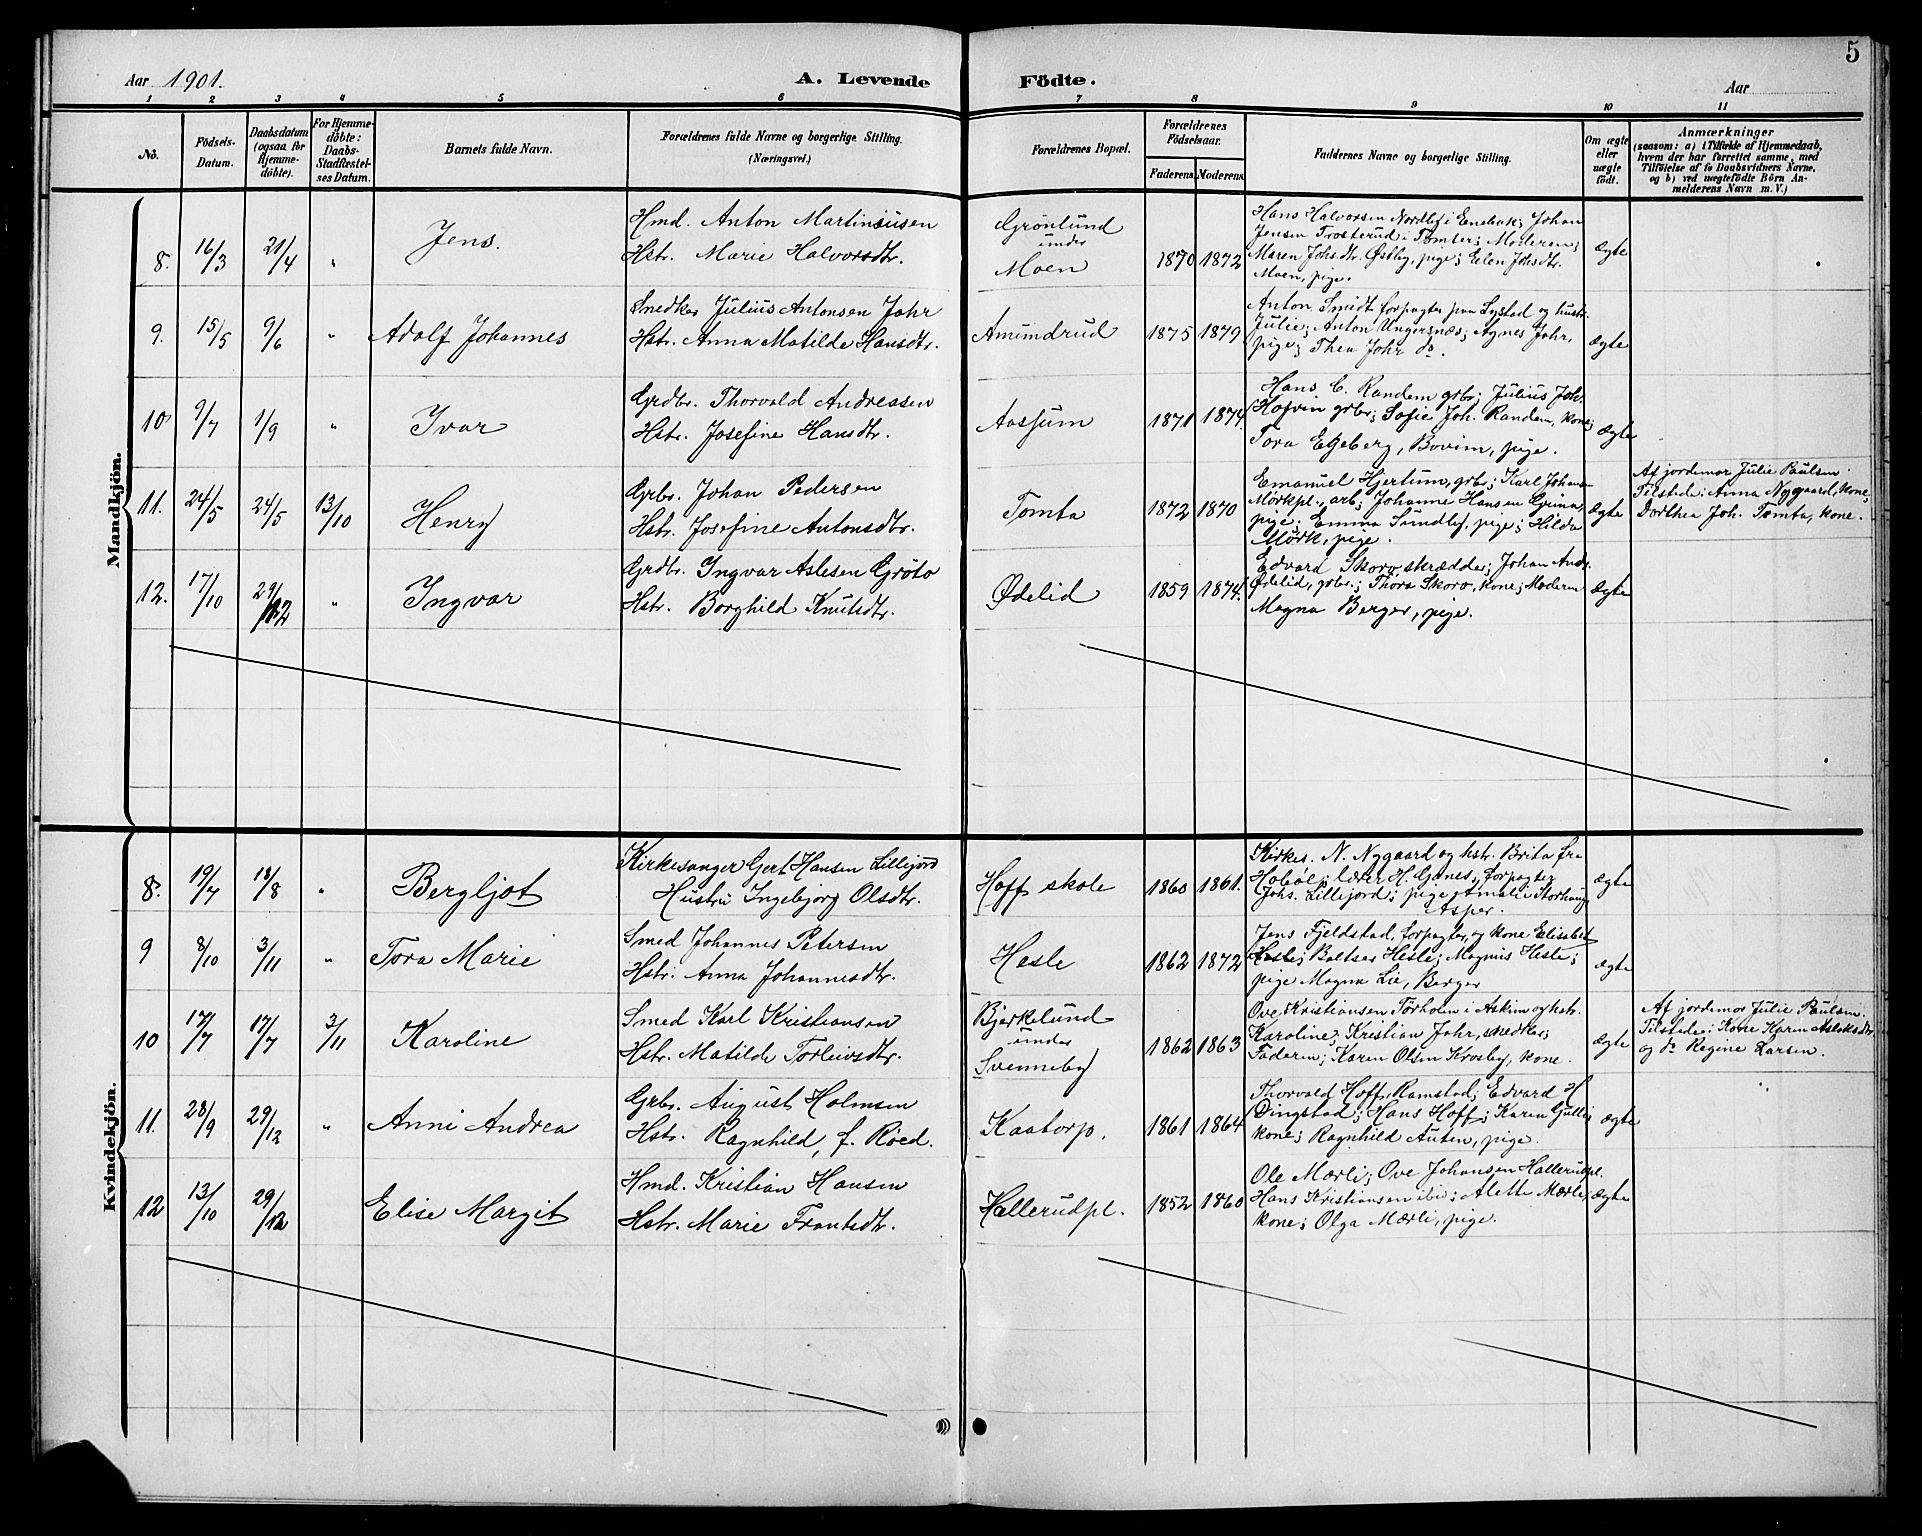 5
Aar 1901.
A. Levende Födte.
Aar
1 2 3 4 5 6 7 8 9 10 11
No.
Födsels-
Datum.
Daabsdatum
(ogsaa for
Hjemme-
döbte).
For Hjemme-
döbte:
Daabs-
Stadfæstel-
ses Datum.
Barnets fulde Navn.
Forældrenes fulde Navne og borgerlige Stilling.
(Næringsvei.)
Forældrenes Bopæl.
Forældrenes
Födselsaar.
Faderens
Moderens
Faddernes Navne og borgerlige Stilling.
Om ægte
eller
uægte
født.
Anmærkninger
(saasom: a) i Tilfælde af Hjemmedaab,
hvem der har forrettet samme, med
Tilföielse af to Daabsvidners Navne,
og b) ved uægtefödte Börn An-
melderens Navn m. V.)
Mandkjön.
8. 16/3 21/4 " Jens.
Hmd. Anton Martiniusen
Hstr. Marie Halvorsdtr.
Grönlund
under
Moen
1870 1872
Hans Halvorsen Nordlef i Enebak; Johan
Jensen Trosterud i Tomter; Moderen;
Maren Johsdtr. Østby, pige; Elen Johsdtr.
Moen, pige.
Ægte
9. 15/5 9/6 " Adolf Johannes
Snedker Julius Antonsen Jahr
Hstr. Anna Matilde Hansdtr.
Amundrud
1875 1879
Anton Smidt forpagter paa Lystad og hustr.
Julie; Anton Ungersnæs; Agnes Jahr,
pige; Thea Jahr do.
Ægte
10 9/7 1/9 " Ivar
Grdbr. Thorvald Andreasen
Hstr. Josefine Hansdtr.
Aossum
1871 1874.
Hans C. Randem grbr; Julius Joh.
Hofvin grbr; Sofie Joh. Randem, kone;
Tora Egeberg, Bovim, pige.
Ægte
11. 24/5 24/5 13/10 Henry
Grbr. Johan Pedersen
Hstr. Josefine Antonsdtr.
Tomta
1872 1870
Emanuel Hjertum, grbr; Karl Johansen
Mørkpl., arb; Johanne Hansen Grina,
pige; Emma Sundlef, pige; Hilda
Mørk, pige.
Ægte
Af jordemor Julie Paulsen.
Tilstede: Anna Nygaard, kone,
Dorthea Joh. Tomta, kone.
12. 17/10 29/12 " Ingvar
Grdbr. Ingvar Aslesen Grøto
Hstr. Borghild Knutsdtr.
Ødelid
1859 1874.
Edvard Skoro skrædder; Johan Andr.
Ødelid, grbr.; Thora Skoro, kone; Moderen
Magna Berger, pige.
Ægte
Kvindekjön.
8. 19/7 18/8 " Bergljot
Kirkesanger Gert Hansen Lillejord
Hustru Ingebjørg Olsdtr.
Hoff skole
1860 1861.
Kirkes. N. Nygaard og hstr. Brita fra
Hobøl; lærer H. Gjønes; forpagter
Johs. Lillejord; pige Amalie Storhaug
Asper.
Ægte
9 8/10 3/11 " Tora Marie
Smed Johannes Petersen
Hstr. Anna Johannesdtr.
Hesle
1862 1872
Jens Fjeldstad, forpagter, og kone Elisabet
Hesle; Baltser Hesle; Magnus Hesle;
pige Magna Lie, Berger
Ægte
10 17/7 17/7 3/11 Karoline
Smed Karl Kristiansen
Hstr. Matilde Torleivsdtr.
Bjerkelund
under
Svenneby
1862 1863
Ove Kristiansen Torholm i Askim og hstr.
Karoline; Kristian Jahr, snedker;
Faderen; Karen Olsen Krosby, kone.
Ægte
Af jordemor Julie Paulsen.
Tilstede: Kone Karen Aslaksdtr.
og do Regine Larsen.
11. 28/9 29/12 " Anni Andrea
Grbr. August Holmsen
Hstr. Ragnhild, f. Röed.
Kaatorp.
1861 1864
Thorvald Hoff, Ramstad; Edvard H
Dingstad; Hans Hoff; Karen Gulli,
kone; Ragnhild Auten, pige.
Ægte
12 13/10 29/12 Elise Margit
Hmd. Kristian Hansen
Hstr. Marie Frantsdtr.
Hallerudpl.
1852 1860
Ole Mærli; Ove Johansen Hallerudpl.
Hans Kristiansen ibid; Alette Mærli,
kone; Olga Mærli, pige.
Ægte